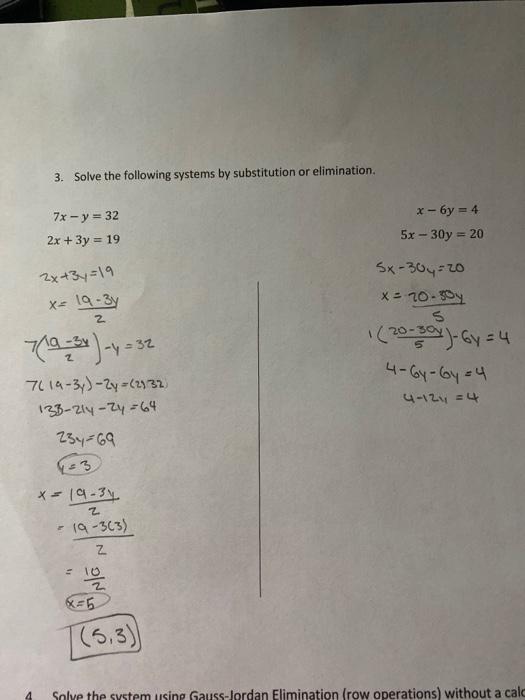 3. Solve the following systems by substitution or elimination.
7x – y = 32
2x + 3y = 19
2x+3y=19
x= 19-3y
2
7(19-3y
2)-y=32
7(19-3y)-2y=(2)32
133-21y-2y=64
23y=69
y=3
x= 19-3y
2
= 19-3(3)
2
= 10
2
x=5
(5,3)
x – 6y = 4
5x – 30y = 20
5x-30y=20
x= 20-30y
5
1(20-30y
5)-6y=4
4-6y-6y=4
4-12y=4
4 Solve the system using Gauss-Jordan Elimination (row operations) without a calc